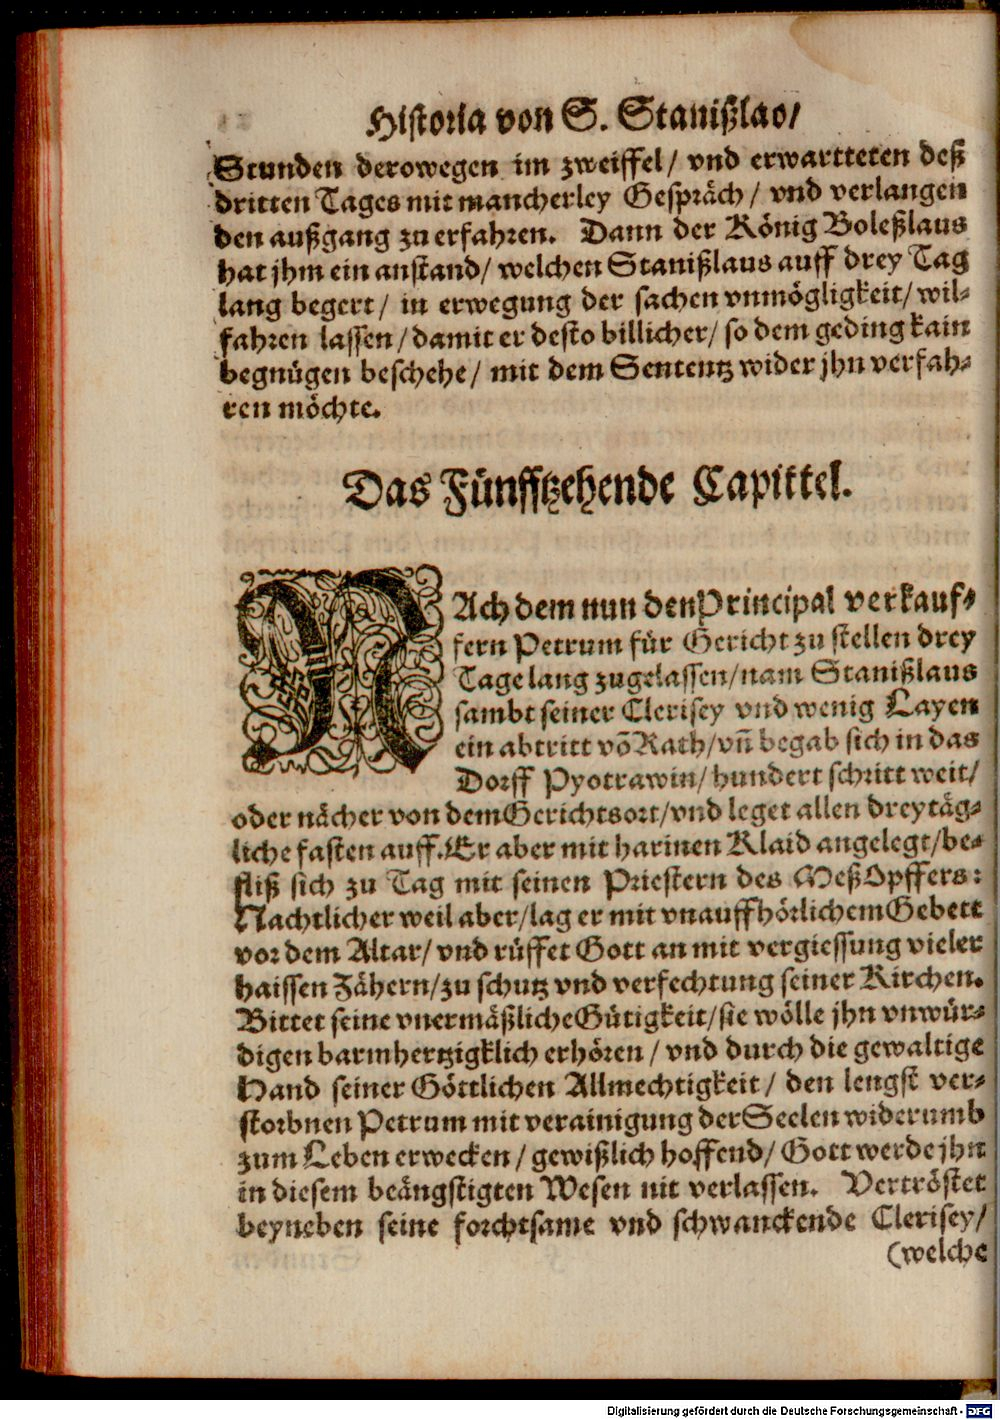 Historia von S. Stanißlao/
Stunden derowegen im zweiffel/ vnd erwartteten deß
dritten Tages mit mancherley Gespräch/ vnd verlangen
den außgang zu erfahren. Dann der König Boleßlaus
hat jhm ein anstand/ welchen Stanißlaus auff drey Tag
lang begert/ in erwegung der sachen vnmögligkeit/ wil-
fahren lassen/ damit er desto billicher/ so dem geding kain
begnügen beschehe/ mit dem Sententz wider jhn verfah-
ren möchte.
Das Fünfftzehende Capittel.
NAch dem nun den Principal verkauf-
fern Petrum für Gericht zu stellen drey
Tage lang zugelassen/ nam Stanißlaus
sambt seiner Clerisey vnd wenig Layen
ein abtritt võ Rath/ vñ begab sich in das
Dorff Pyotrawin/ hundert schritt weit/
oder nächer von dem Gerichtsort/ vnd leget allen dreytäg-
liche fasten auff. Er aber mit harinen Klaid angelegt/ be-
fliß sich zu Tag mit seinen Priestern des MeßOpffers:
Nachtlicher weil aber/ lag er mit vnauffhörlichem Gebett
vor dem Altar/ vnd rüffet Gott an mit vergiessung vieler
haissen Zähern/ zu schutz vnd verfechtung seiner Kirchen.
Bittet seine vnermäßliche Gütigkeit/ sie wölle jhn vnwür-
digen barmhertzigklich erhören/ vnd durch die gewaltige
Hand seiner Göttlichen Allmechtigkeit/ den lengst ver-
storbnen Petrum mit verainigung der Seelen widerumb
zum Leben erwecken/ gewißlich hoffend/ Gott werde jhn
in diesem beängstigten Wesen nit verlassen. Vertröstet
beyneben seine forchtsame vnd schwanckende Clerisey/
(welche
Digitalisierung gefördert durch die Deutsche Forschungsgemeinschaft - DFG